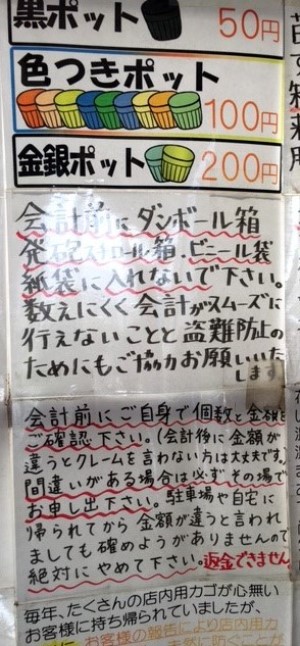 黒ポット 50円
色つきポット
100円
金銀ポット 200円
会計前にダンボール箱
発砲スチロール箱・ビニール袋
紙袋に入れないで下さい。
数えにくく会計がスムーズに
行えないことと盗難防止の
ためにもご協力お願いいた
します
会計前にご自身で個数と金額を
ご確認下さい。(会計後に金額が
違うとクレームを言わない方は大丈夫です。)
間違いがある場合は必ずその場で
お申し出下さい。駐車場や自宅に
帰られてから金額が違うと言われ
ましても確めようがありませんので
絶対にやめて下さい。返金できません
毎年、たくさんの店内用カゴが心無い
お客様に持ち帰られていましたが、
お客様の報告により店内用カ